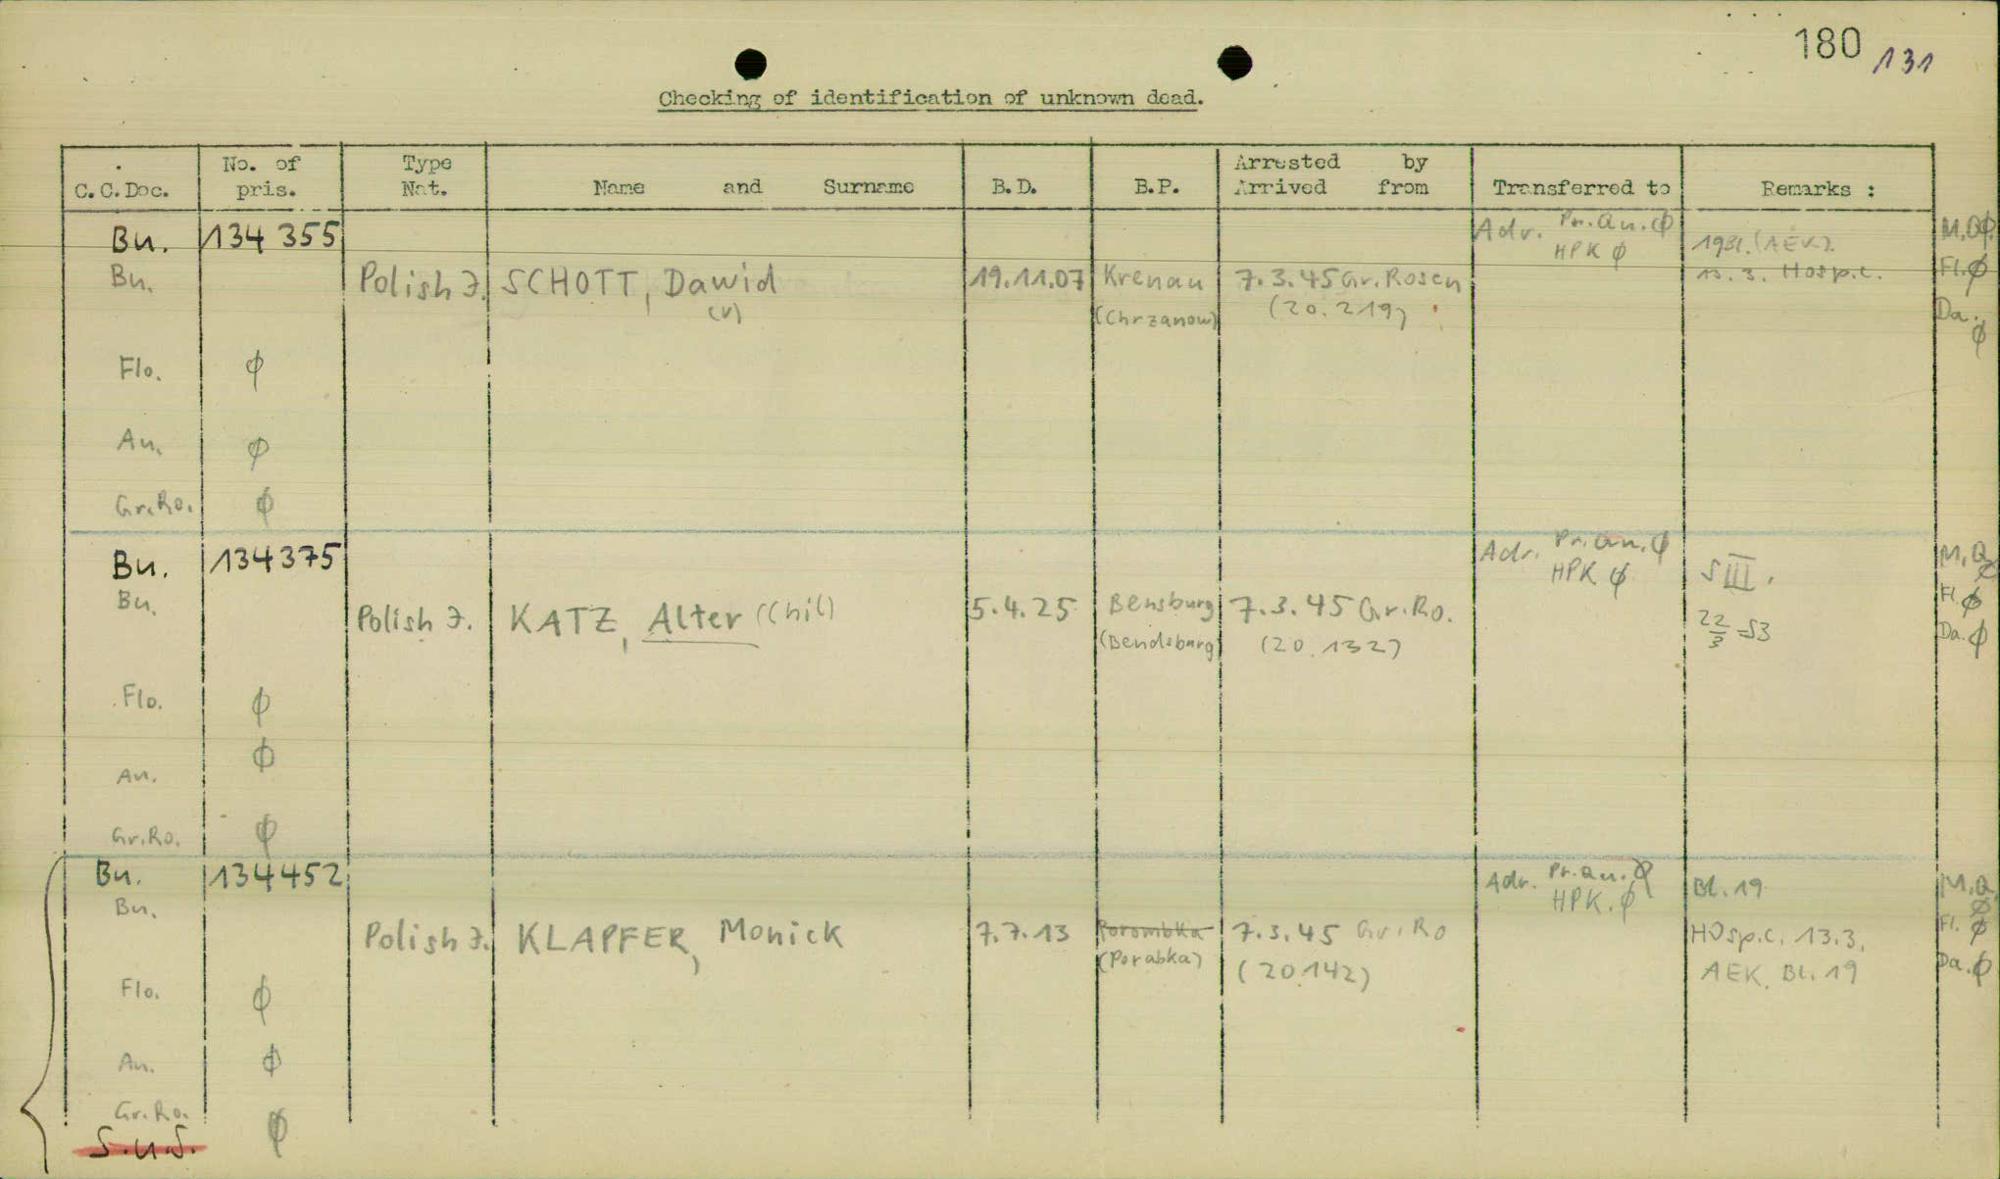 180 131
Checking of identification of unknown dead.
C.C.Doc. No. of pris. Type Nat. Name and Surname B.D. B.P. Arrested by Arrived from Transferred to Remarks :
Bu. 134 355 Adr. Pr.au. ϕ M.Q ϕ
HPK ϕ
Bu. Polish J. SCHOTT, Dawid 19.11.07 Krenau 7.3.45 Gr.Rosen 13.3. Hosp.c. Fl. ϕ
(V) (Chrzanow) (20.219) Da. ϕ
Flo. ϕ
Au. ϕ
Gr.Ro. ϕ
Bu. 134375 Adr. Pr.au. ϕ S III. M.Q ϕ
HPK ϕ
Bu. Polish J. KATZ, Alter (Chil) 5.4.25 Bensburg 7.3.45 Gr.Ro. 22/3 =53 Fl. ϕ
(Bendsburg) (20.132) Da. ϕ
Flo. ϕ
Au. ϕ
Gr.Ro. ϕ
Bu. 134452 Adr. Pr.au. ϕ Bl. 19 M.Q ϕ
HPK. ϕ
Bu. Polish J. KLAPFER, Monick 7.7.13 Porombka 7.3.45 Gr.Ro HOsp.c. 13.3. Fl. ϕ
(Porabka) (20.142) AEK. Bl. 19 Da. ϕ
Flo. ϕ
Au. ϕ
Gr.Ro. ϕ
S.u.S.